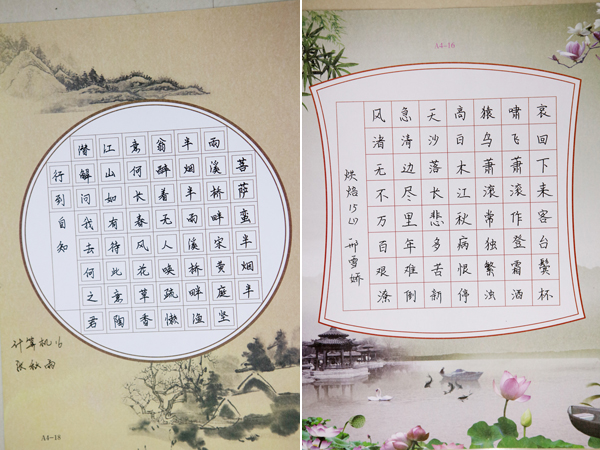 菩萨蛮半烟半
雨溪桥畔宋黄庭坚
半烟半雨溪桥畔渔
翁醉着无人唤疏懒
意何长春风花草香
江山如有待此意陶
潜解问我去何之君
行到自知
计算机16
张秋雨
A4-18
A4-18
风急天高猿啸哀
渚清沙白鸟飞回
无边落木萧萧下
不尽长江滚滚来
万里悲秋常作客
百年多病独登台
艰难苦恨繁霜鬓
潦倒新停浊酒杯
15(1) 邢雪娇